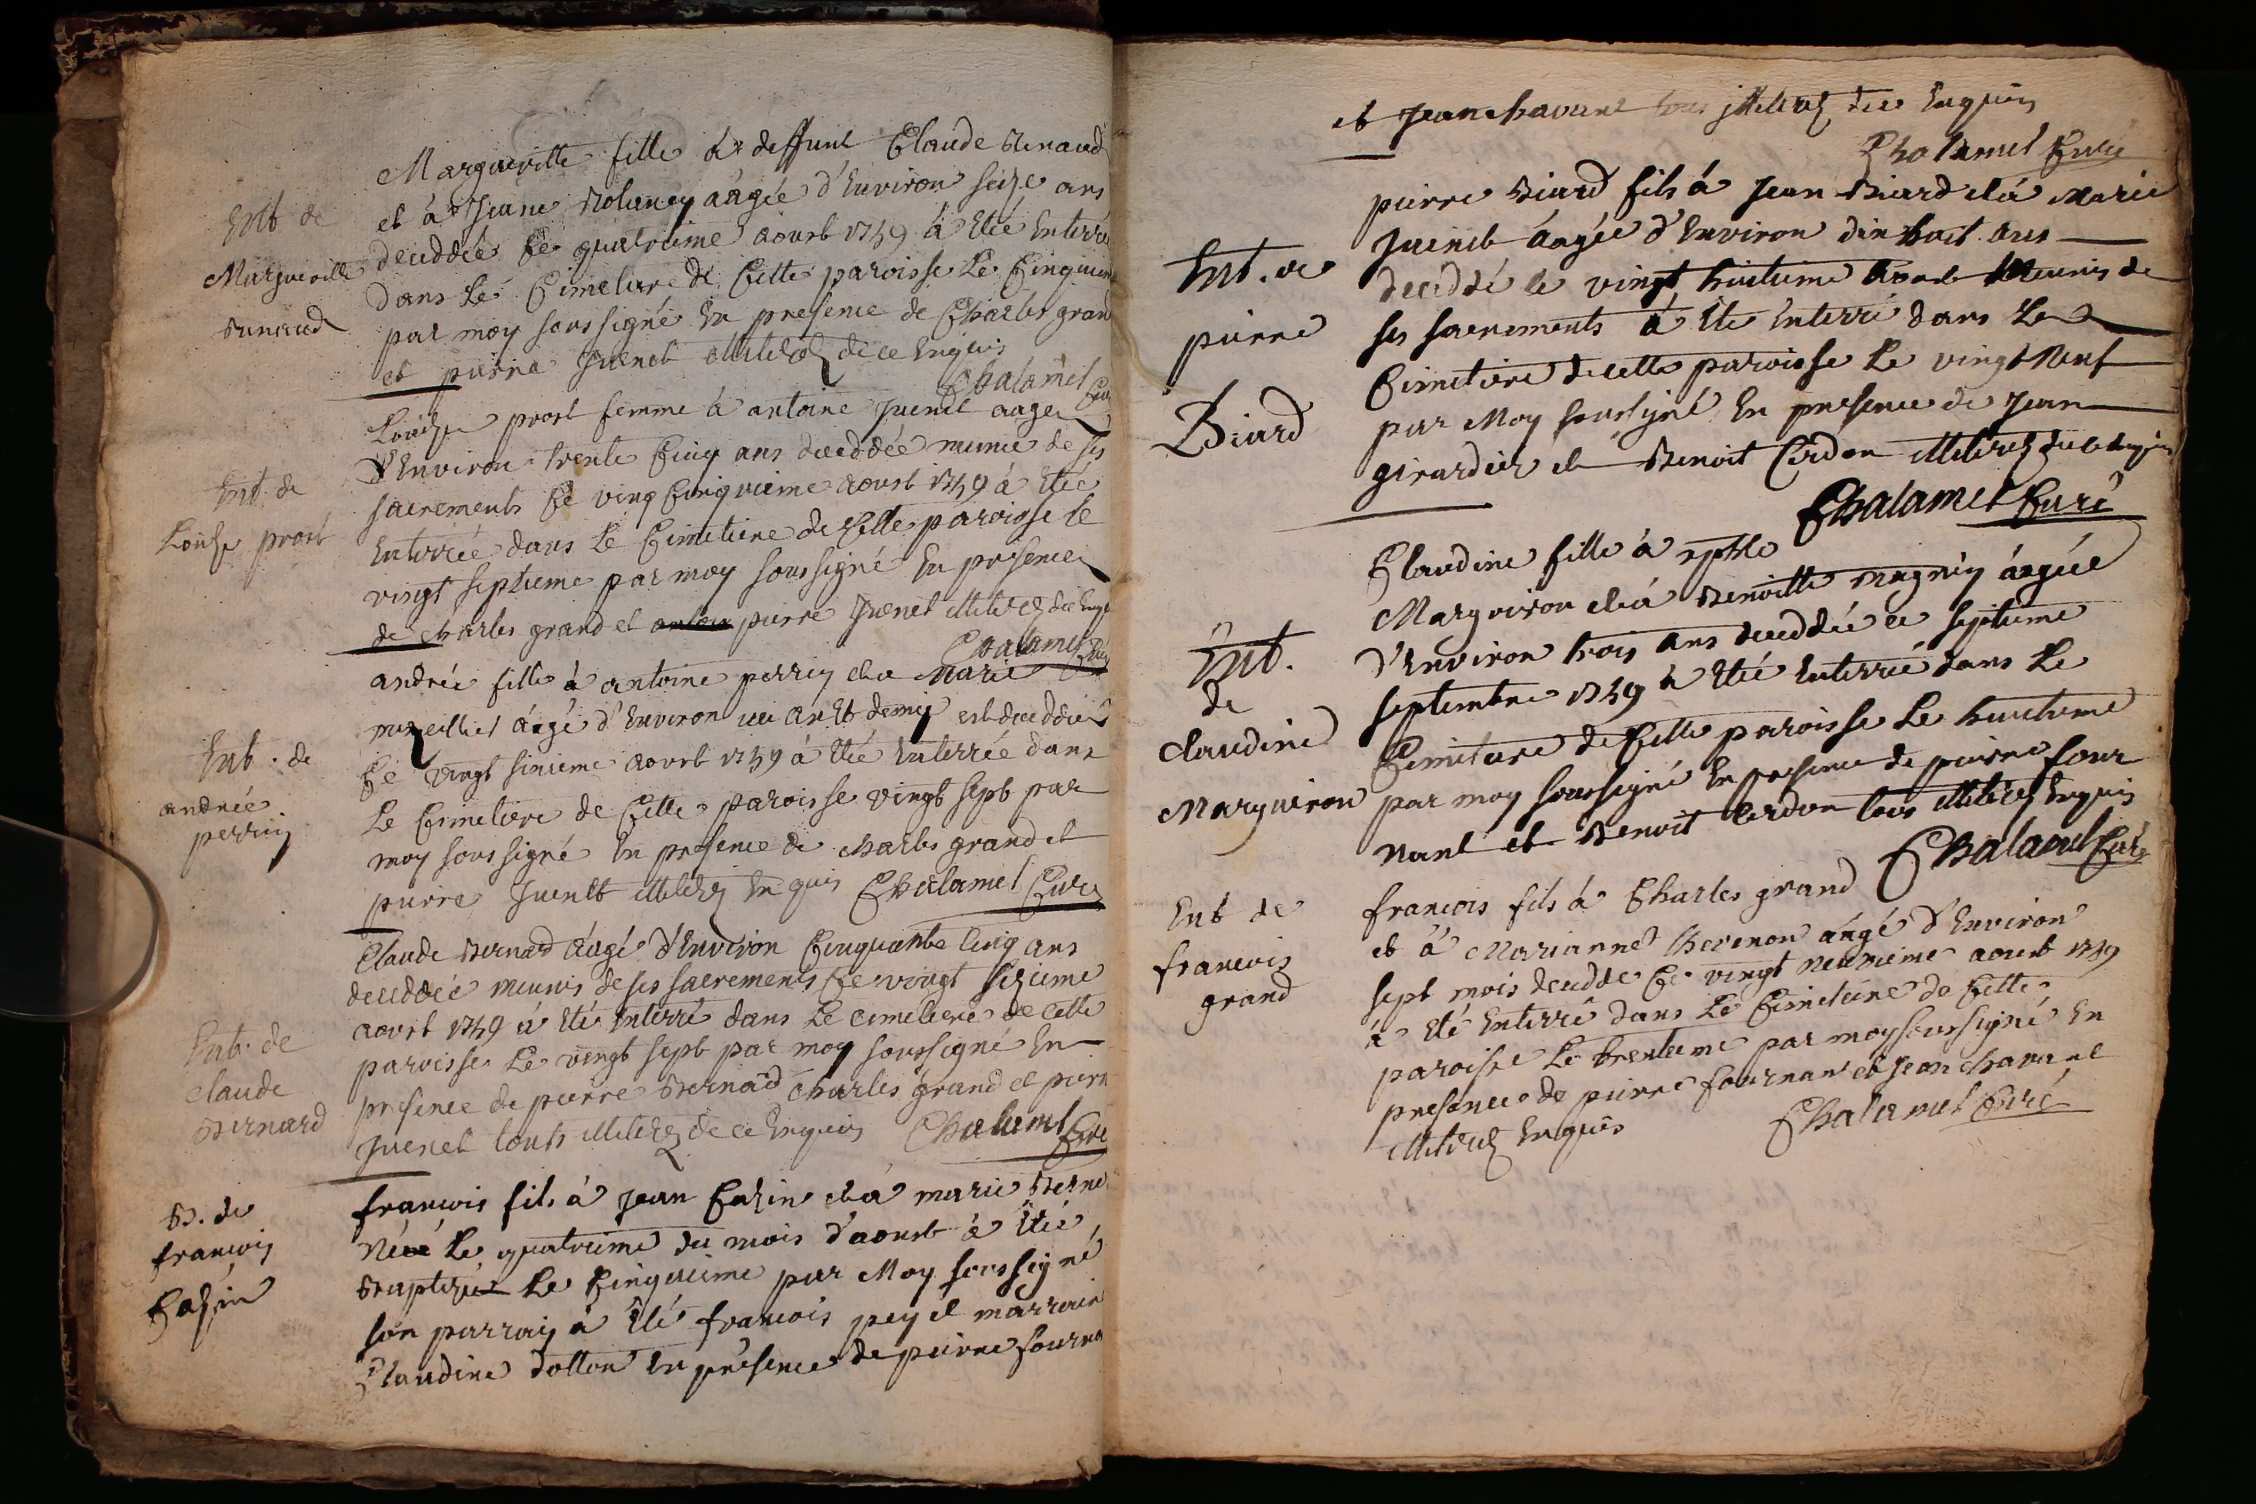 Ent de
Margueritte
Renaud
Margueritte fille à deffunt Claude Renaud
et à Jeane âagée d'Environ seize ans
deceddée Ce quatrieme aoust 1749 à Eté Enterrée
dans Le Cimetiere de Cette paroisse Le Cinquieme
par moy soussigné En presence de Charles grand
et pierre Juenet illiterez de ce Enquis
Chalamel Curé
Ent. de
Louise prost
Louise prost femme à antoine Juenet aagée
d'Environ trente Cinq ans deceddée munie de ses
sacrements Ce ving Cinquieme aoust 1749 à Etée
Enterrée dans Le Cimetiere de Cette paroisse le
vingt septieme par moy soussigné En presence
de charles grand et pierre Juenet illiterez de ce Enquis
Chalamel Curé
Ent. de
andrée
perrin
andrée fille à antoine perrin et à Marie
âagé d'Environ un an Et demy est deceddée
Ce vingt sixieme aoust 1749 à Eté Enterrée dans
Le Cimetiere de Cette paroisse vingt sept par
moy soussigné En presence de charles grand et
pierre Juenet illiterez Enquis Chalamel Curé
Ent. de
claude
Bernard
Claude Bernard âagé d'Environ Cinquante Cinq ans
deceddéé munis de ses sacrements Ce vingt sixieme
aoust 1749 à Eté Enterré dans Le cimetiere de Cette
paroisse Le vingt sept par moy soussigné En
presence de pierre Bernard Charles grand et pierre
Juenet touts illiterez de ce Enquis Chalamel Curé
B. de
francois
Cazin
francois fils à Jean Cazin et à marie
Néé Le quatrieme du mois d'aoust à Etée
Baptizé Le Cinquieme par Moy soussigné
son parrain à Eté francois pey et marraine
Claudine dotton En presence de pierre
et Jean chavant tous illiterez de ce Enquis
Chalamel Curé
Ent. de
pierre
Biard
pierre Biard fils à Jean Biard et à Marie
Juenet âagée d'Environ dix huit ans
decedde le vingt huitieme aoust Meunis de
ses sacrements à Eté Enterré dans Le
Cimetiere de cette paroisse Le vingt Neuf
par Moy soussigné En presence de Jean
girardier et Benoit Cerdon illiterez de ce Enquis
Chalamel Curé
Ent.
de
claudine
Marguiron
Claudine fille à
Marguiron et à Benoitte magnin âagéé
d'Environ trois ans decedde ce septieme
septembre 1749 à Etée Enterrée dans Le
Cimitiere de Cette paroisse Le huitieme
par moy soussigné En presence de pierre four
nant et Benoit Cerdon tous illiterez Enquis
Chalamel Curé
Ent de
francois
grand
francois fils à Charles grand
et à Marianne thevenon âagé d'Environ
sept mois decedde Ce vingt neuvieme aoust 1749
à Eté Enterré dans Le Cimetiere de Cette
paroisse Le trentieme par moy soussigné En
presence de pierre fournant et Jean chavant
illiterez Enquis Chalamel Curé